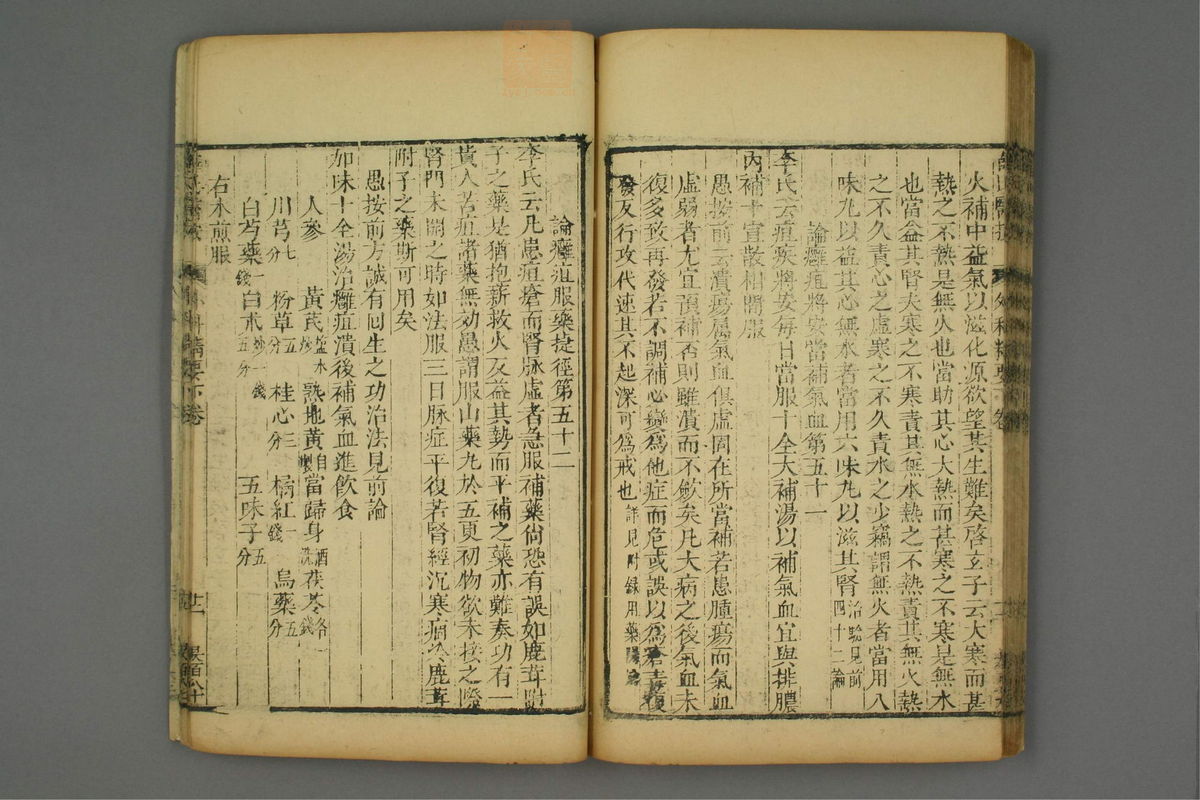 火補中益氣以滋化源欲望其生難矣啓玄子云大寒而甚
熱之不熱是無火也當助其心大熱而甚寒之不寒是無水
也當益其腎夫寒之不寒責其無水熱之不熱責其無火熱
之不久責心之虛寒之不久責水之少竊謂無火者當用八
味丸以益其心無水者當用六味丸以滋其腎治驗見前四十二論
論癰疽將安當補氣血第五十一
李氏云疽疾將安每日當服十全大補湯以補氣血宜與排膿
內補十宣散相間服
愚按前云潰瘍屬氣血俱虛固在所當補若患腫瘍而氣血
虛弱者尤宜預補否則雖潰而不斂矣凡大病之後氣血未
復多致再發若不調補必變爲他症而危或誤以爲瘡毒復
發反行攻伐速其不起深可爲戒也詳見附錄用藥
論癰疽服藥捷徑第五十二
李氏云凡患疽瘡而腎脉虛者急服補藥尚恐有誤如鹿茸附
子之藥是猶抱薪救火反益其勢而平補之藥亦難奏功有一
貴人苦疽諸藥無効愚謂服山藥丸於五更初物欲未接之際
腎門未開之時如法服三日脉症平復若腎經沉寒痼冷鹿茸
附子之藥斯可用矣
愚按前方誠有回生之功治法見前論
加味十全湯治癰疽潰後補氣血進飲食
人參 黃芪鹽水炒 熟地黃自製 當歸身酒洗 茯苓各一錢
川芎七分 粉草五分 桂心三分 橘紅一錢 烏藥五分
白芍藥一錢 白朮炒一錢五分 五味子五分
右水煎服